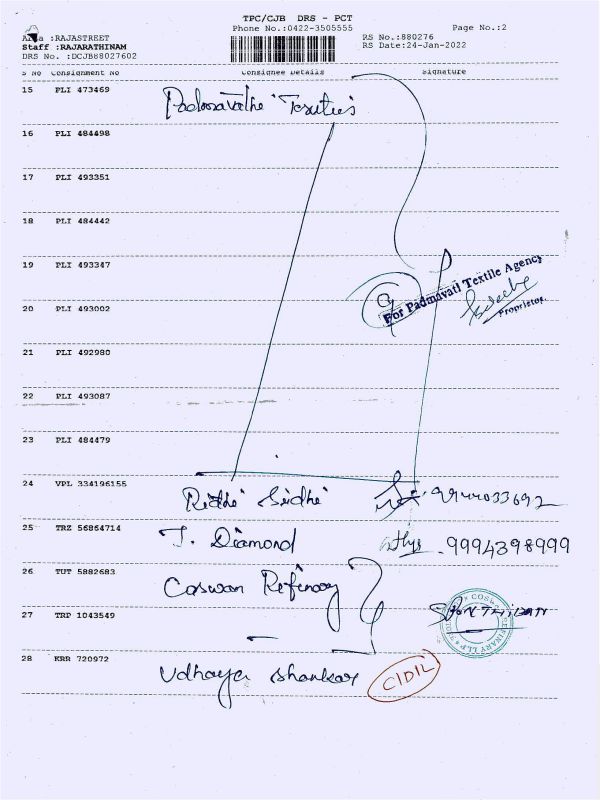 TPC/CJB DRS - PCT
Phone No.:0422-3505555
Page No.:2
Area :RAJASTREET
Staff :RAJARATHINAM
DRS No. :DCJB68027602
RS No.:880276
RS Date:24-Jan-2022
S No Consignment No Consignee Details Signature
15 PLI 473469 Padmavathi Textiles
16 PLI 484498
17 PLI 493351
18 PLI 484442
19 PLI 493347
For Padmavati Textile Agency
Proprietor.
20 PLI 493002
21 PLI 492980
22 PLI 493087
23 PLI 484479
24 VPL 334196155 Ridhi Sidhi 9944033692
25 TRZ 56864714 T. Diamond 9994398999
26 TUT 5882683 Coswan Refinery
27 TRP 1043549
REFINARY LLP
28 KRR 720972 Udhaya Shankar CIDIL